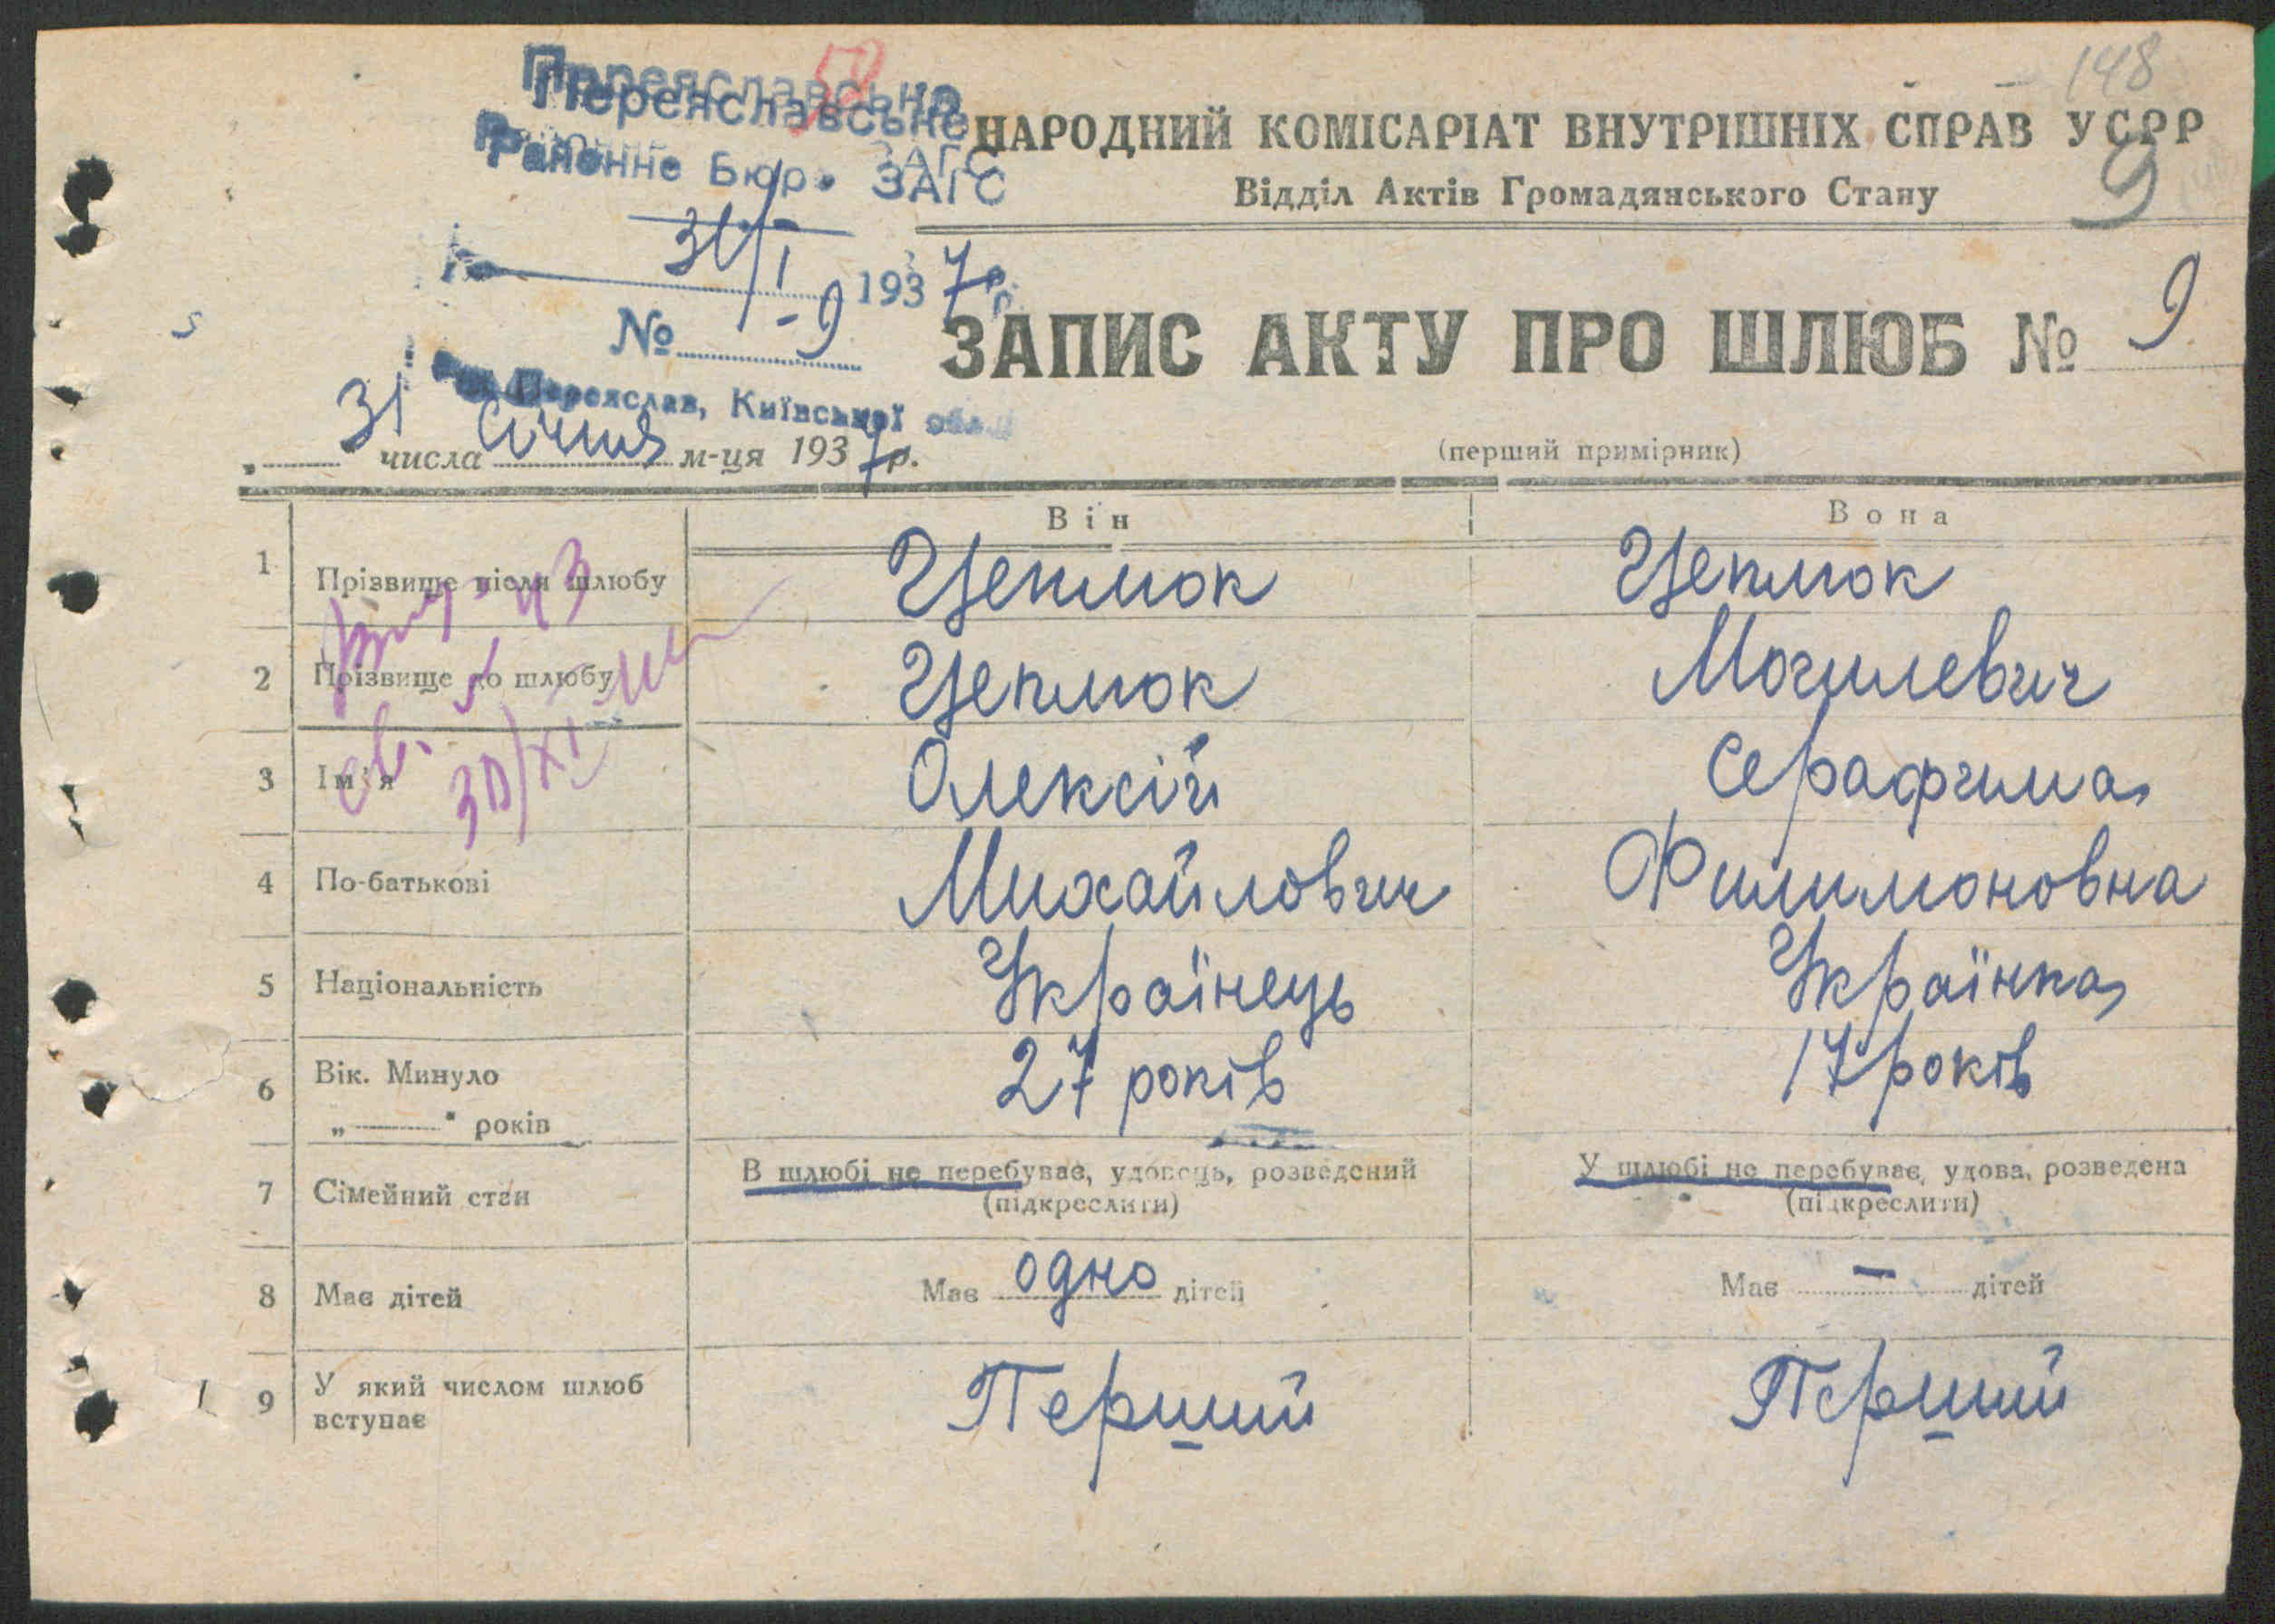 148
50
Переяславське
Районне Бюро ЗАГС
31/I 1937р.
№ -9
Переяслав, Київської обл.
НАРОДНИЙ КОМІСАРІАТ ВНУТРІШНІХ СПРАВ УСРР
Відділ Актів Громадянського Стану
9
ЗАПИС АКТУ ПРО ШЛЮБ № 9
„31" числа січня м-ця 1937р.
(перший примірник)
Він Вона
1 Прізвище після шлюбу Цепмок Цепмок
2 Прізвище до шлюбу Цепмок Могилевич
3 Ім'я Олексій Серафима
4 По-батькові Михайлович Филимоновна
5 Національність Українець Українка
6 Вік. Минуло „ " років 27 років 17 років
7 Сімейний стан В шлюбі не перебуває, удовець, розведений У шлюбі не перебуває, удова, розведена
(підкреслити) (підкреслити)
8 Має дітей Має одно дітей Має — дітей
9 У який числом шлюб вступає Перший Перший
30/XI